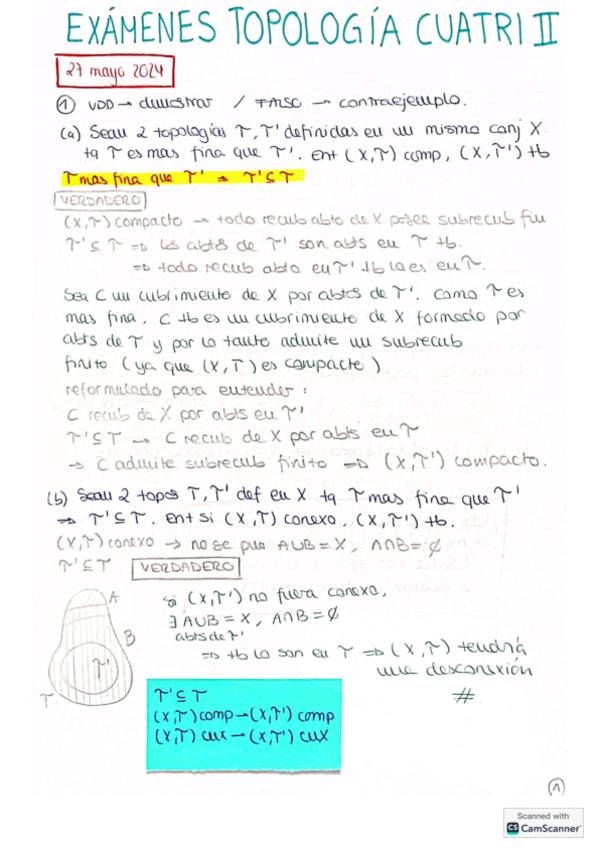 EXÁMENES TOPOLOGÍA CUATRI II
27 mayo 2024
① VDD → demostrar / FALSO → contraejemplo.
(a) Sean 2 topologías T, T' definidas en un mismo conj X
tq T es mas fina que T'. Ent (X,T) comp, (X,T') tb
T mas fina que T' ⇒ T' ⊆ T
VERDADERO
(X,T) compacto → todo recub abto de X posee subrecub fin
T' ⊆ T ⇒ los abtos de T' son abts en T tb.
⇒ todo recub abto en T' tb lo es en T.
Sea C un cubrimiento de X por abtos de T'. Como T es
mas fina, C tb es un cubrimiento de X formado por
abts de T y por lo tanto admite un subrecub
finito (ya que (X,T) es compacto)
reformulado para entender:
C recub de X por abts en T'
T' ⊆ T → C recub de X por abts en T
→ C admite subrecub finito ⇒ (X,T') compacto.
(b) Sean 2 topos T, T' def en X tq T mas fina que T'
⇒ T' ⊆ T. Ent si (X,T) conexo, (X,T') tb.
(X,T) conexo → no se pue A∪B = X, A∩B = ∅
T' ⊆ T VERDADERO
si (X,T') no fuera conexo,
∃ A∪B = X, A∩B = ∅
abts de T'
⇒ tb lo son en T ⇒ (X,T) tendría
una desconexión
#
A
B
T'
T
T' ⊆ T
(X,T) comp → (X,T') comp
(X,T) cnx → (X,T') cnx
①
Scanned with
CS CamScanner